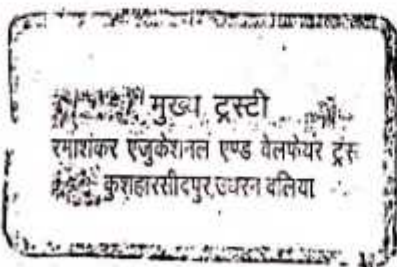 मुख्य ट्रस्टी
रमाशंकर एजुकेशनल एण्ड वेलफेयर ट्रस्ट
कुशहारसीदपुर,उधरन बलिया